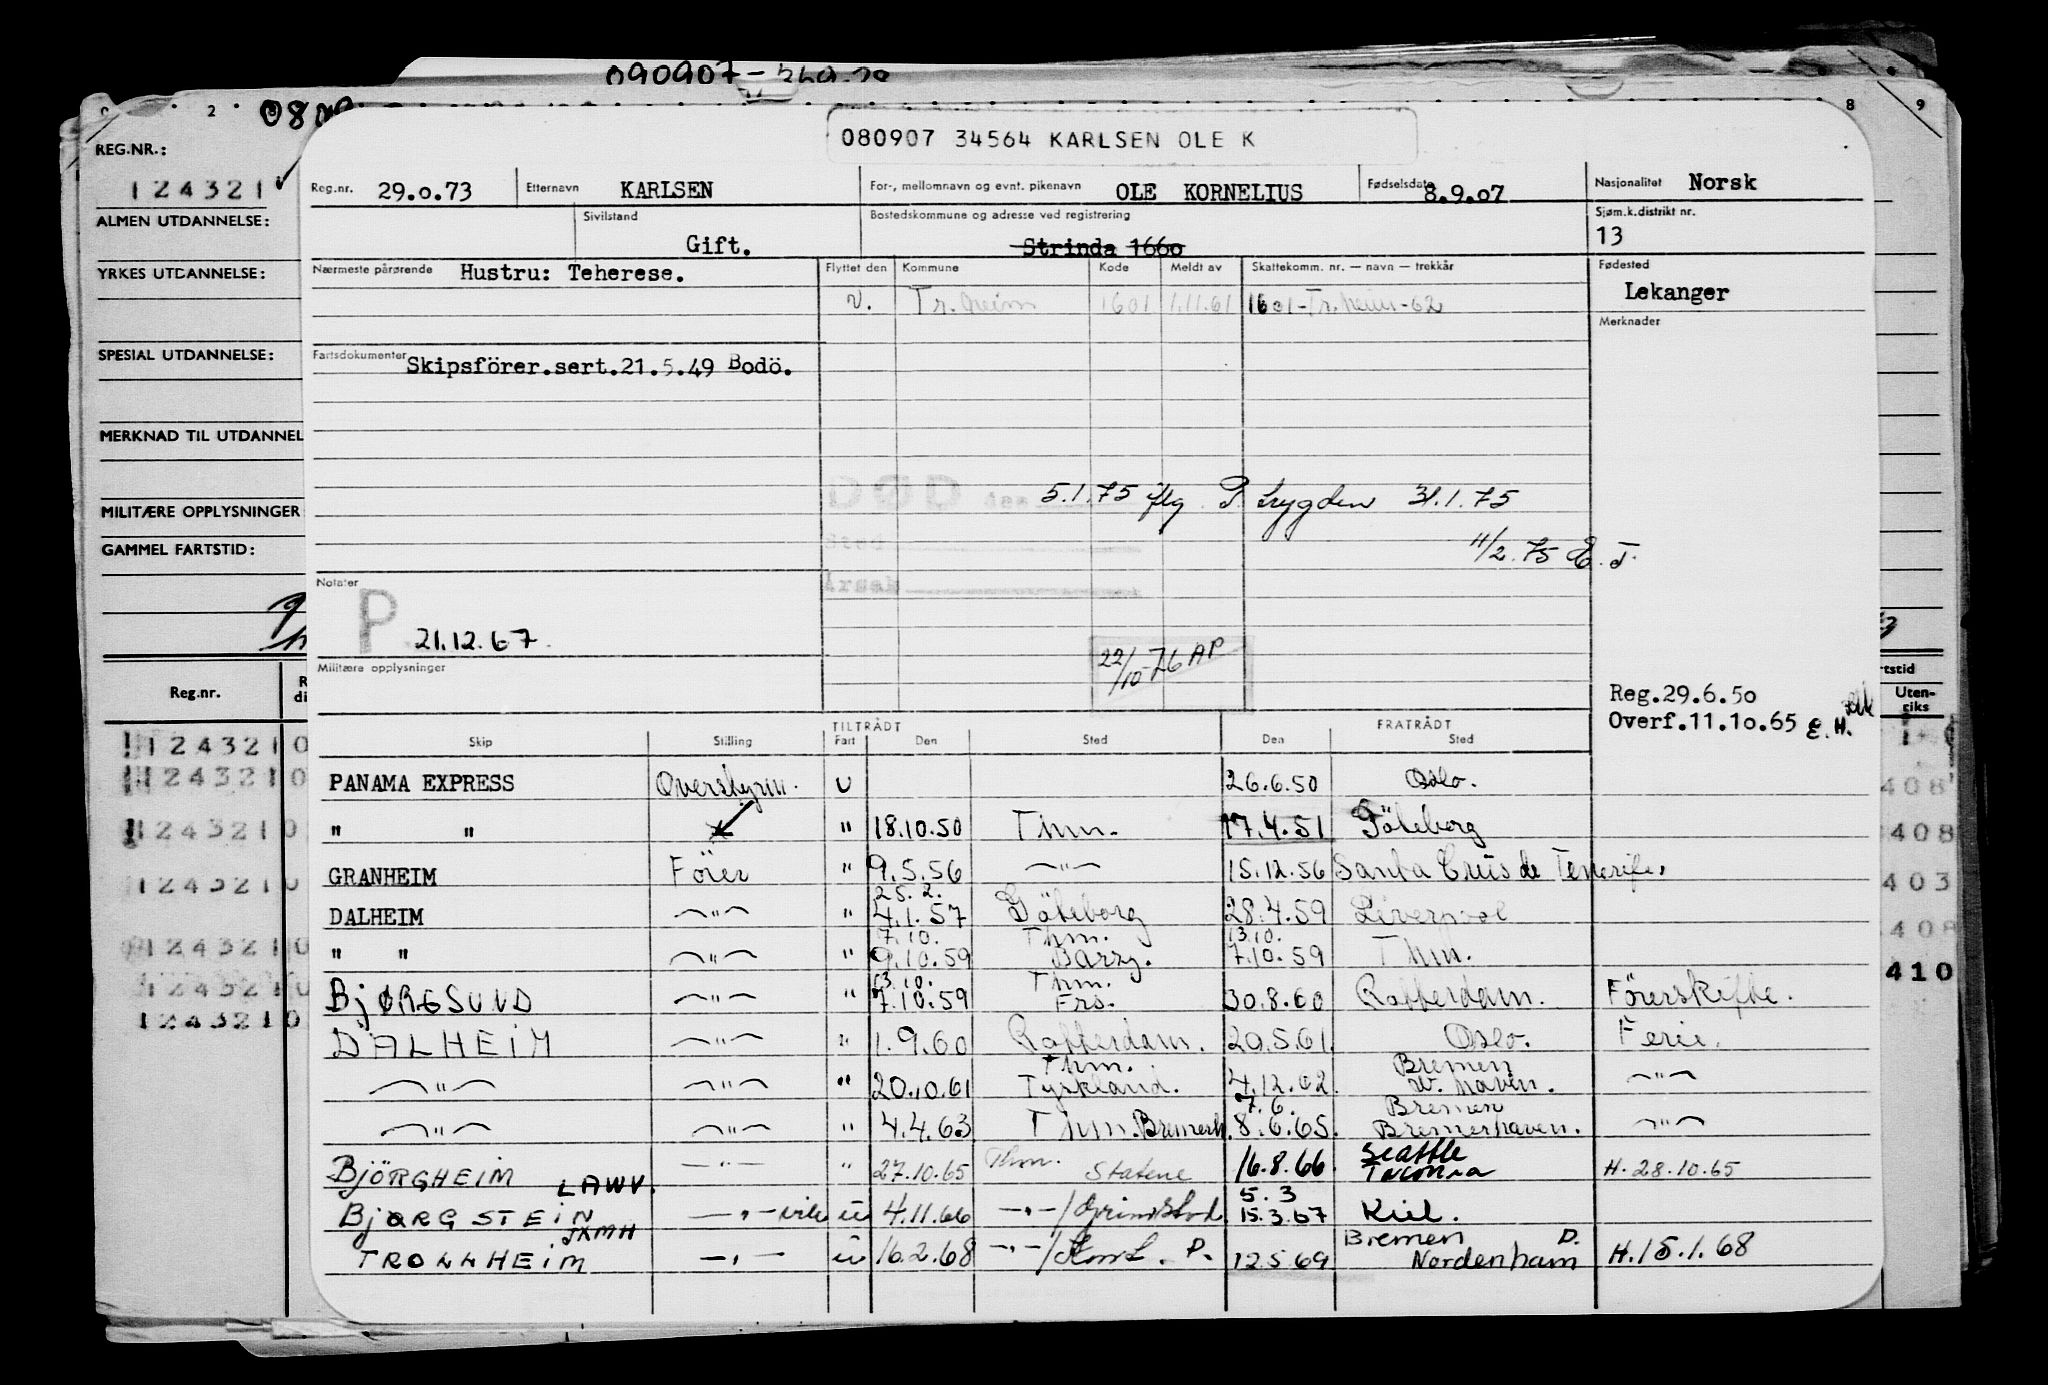 090907-
080907 34564 KARLSEN OLE K
REG.NR.:
124321
Reg.nr. 29.o.73 Etternavn KARLSEN For-, mellomnavn og evnt. pikenavn OLE KORNELIUS Fødselsdato 8.9.07 Nasjonalitet Norsk
ALMEN UTDANNELSE:
Sivilstand Gift. Bostedskommune og adresse ved registrering Strinda 166o Sjøm.k.distrikt nr. 13
YRKES UTDANNELSE:
Nærmeste pårørende Hustru: Teherese. Flyttet den Kommune Kode Meldt av Skattekomm. nr. — navn — trekkår Fødested Lekanger
v. Tr.heim 1601 1.11.61 1601-Tr.heim-62
Merknader
SPESIAL UTDANNELSE:
Fartsdokumenter Skipsförer.sert.21.5.49 Bodö.
MERKNAD TIL UTDANNEL
MILITÆRE OPPLYSNINGER
DØD 5.1.75 iflg. P. trygden 31.1.75
GAMMEL FARTSTID:
Sted
11/2.75 E.T.
Årsak
Notater P 21.12.67.
Militære opplysninger
22/10-76 AP
Reg.29.6.5o
Overf.11.1o.65 E.H.
Reg.nr.
Uten-
riks
TILTRÅDT FRATRÅDT
Skip Stilling Fart Den Sted Den Sted
PANAMA EXPRESS Overstyrm. U 26.6.50 Oslo.
" " " 18.10.50 Thm. 17.4.51 Göteborg
GRANHEIM Förer " 9.5.56 —"— 15.12.56 Santa Cruis de Tenerife.
25.2.
DALHEIM —"— " 4.1.57 Göteborg 28.4.59 Liverpool
7.10. Thm. 13.10.
" " —"— " 9.10.59 Barry. 7.10.59 Thm.
13.10. Thm.
BjØRGSUND —"— " 7.10.59 Frs. 30.8.60 Rotterdam. Förerskifte.
DALHEIM —"— " 1.9.60 Rotterdam. 20.5.61. Oslo. Ferie.
Thm. Bremen
—"— —"— " 20.10.61 Tyskland. 4.12.62 W.haven. —"—
7.6. Bremen
—"— —"— " 4.4.63 Thm. Bremerh. 8.6.65. Bremerhaven. —"—
Seattle
BjÖRGHEIM —"— " 27.10.65 Thm. Statene 16.8.66 Tacoma H. 28.10.65
LAWV. 5.3
BjØRGSTEIN —"— u 4.11.66 —"—/Grimstad 15.3.67 Kiel.
JXMH Bremen D.
TROLLHEIM —"— u 16.2.68 —"— 12.5.69 Nordenham H.15.1.68
1243210
1243210
1243210
1243210
1243210
1243210
1243210
408
408
403
408
410